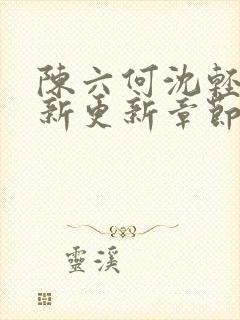 陳六何沈輕
新更新章節
靈溪